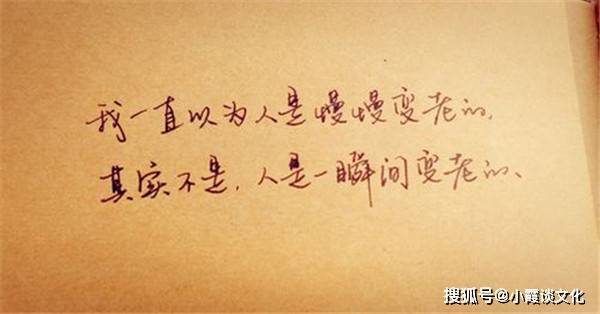 我一直以为人是慢慢变老的,
其实不是,人是一瞬间变老的、
搜狐号@小霞谈文化